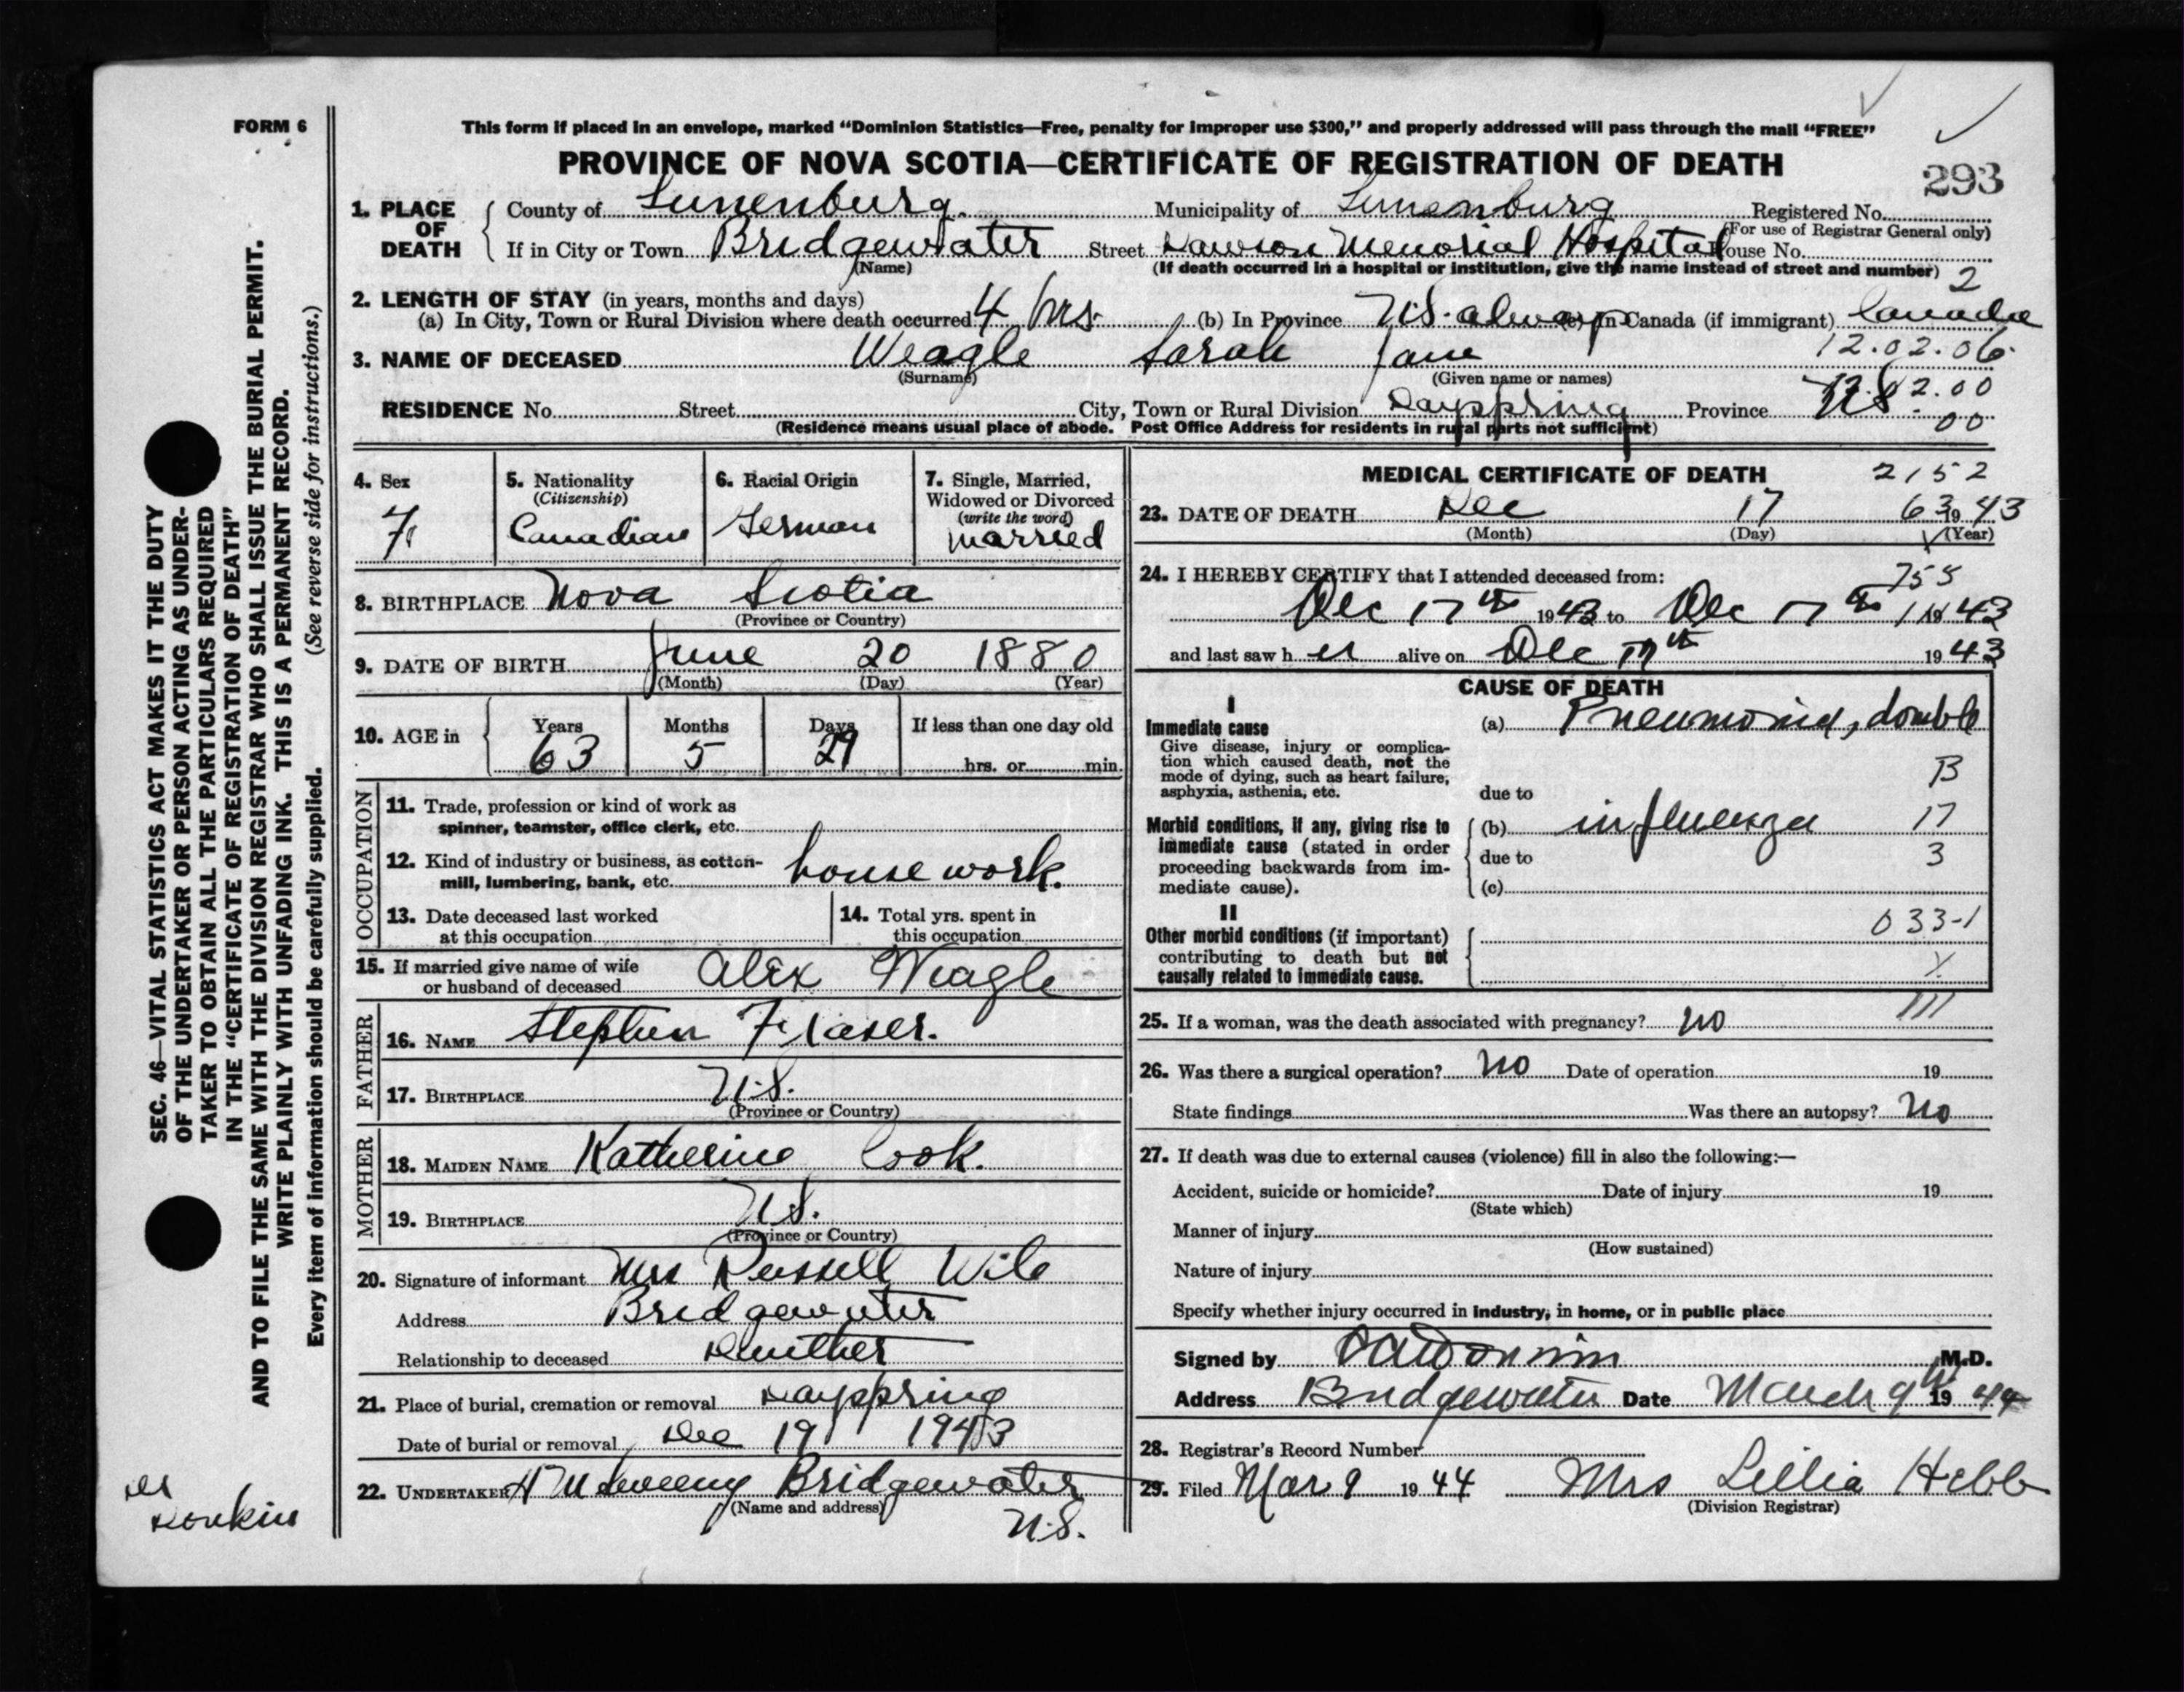 FORM 6
This form if placed in an envelope, marked “Dominion Statistics—Free, penalty for improper use $300,” and properly addressed will pass through the mail “FREE”
PROVINCE OF NOVA SCOTIA—CERTIFICATE OF REGISTRATION OF DEATH
293
1. PLACE OF DEATH
County of Lunenburg. Municipality of Lunenburg Registered No.
(For use of Registrar General only)
If in City or Town Bridgewater Street Dawson Memorial Hospital House No.
(Name) (If death occurred in a hospital or institution, give the name instead of street and number) 2
2. LENGTH OF STAY (in years, months and days)
(a) In City, Town or Rural Division where death occurred 4 hrs. (b) In Province N.S. always (c) In Canada (if immigrant) Canada
12.02.06.
3. NAME OF DECEASED Weagle Sarah Jane
(Surname) (Given name or names)
RESIDENCE No. Street City, Town or Rural Division Dayspring Province NS.
00
(Residence means usual place of abode. Post Office Address for residents in rural parts not sufficient)
4. Sex
F
5. Nationality
(Citizenship)
Canadian
6. Racial Origin
German
7. Single, Married,
Widowed or Divorced
(write the word)
married
8. BIRTHPLACE Nova Scotia
(Province or Country)
9. DATE OF BIRTH June 20 1880
(Month) (Day) (Year)
10. AGE in
Years Months Days If less than one day old
63 5 29 hrs. or min.
OCCUPATION
11. Trade, profession or kind of work as
spinner, teamster, office clerk, etc.
12. Kind of industry or business, as cotton-
mill, lumbering, bank, etc. house work.
13. Date deceased last worked
at this occupation
14. Total yrs. spent in
this occupation
15. If married give name of wife
or husband of deceased Alex Weagle
FATHER
16. NAME Stephen Fraser.
17. BIRTHPLACE N.S.
(Province or Country)
MOTHER
18. MAIDEN NAME Katherine Cook.
19. BIRTHPLACE N.S.
(Province or Country)
20. Signature of informant Mrs Russell Wile
Address Bridgewater
Relationship to deceased
21. Place of burial, cremation or removal Dayspring
Date of burial or removal Dec 19 1943
22. UNDERTAKER Bridgewater
(Name and address)
N.S.
MEDICAL CERTIFICATE OF DEATH 2152
23. DATE OF DEATH Dec 17 63 1943
(Month) (Day) (Year)
24. I HEREBY CERTIFY that I attended deceased from: 755
Dec 17th 1943 to Dec 17th 1943
and last saw h er alive on Dec 17th 1943
CAUSE OF DEATH
I
Immediate cause
Give disease, injury or complica-
tion which caused death, not the
mode of dying, such as heart failure,
asphyxia, asthenia, etc.
(a) Pneumonia, double
B
due to
Morbid conditions, if any, giving rise to
immediate cause (stated in order
proceeding backwards from im-
mediate cause).
(b) influenza 17
due to 3
(c)
II
Other morbid conditions (if important)
contributing to death but not
causally related to immediate cause.
033-1
25. If a woman, was the death associated with pregnancy? no
26. Was there a surgical operation? no Date of operation 19
State findings Was there an autopsy? No
27. If death was due to external causes (violence) fill in also the following:—
Accident, suicide or homicide? Date of injury 19
(State which)
Manner of injury
(How sustained)
Nature of injury
Specify whether injury occurred in industry, in home, or in public place
Signed by M.D.
Address Bridgewater Date March 9th 1944
28. Registrar's Record Number
29. Filed Mar 9 1944 Mrs Lillia Hebb
(Division Registrar)
SEC. 46—VITAL STATISTICS ACT MAKES IT THE DUTY
OF THE UNDERTAKER OR PERSON ACTING AS UNDER-
TAKER TO OBTAIN ALL THE PARTICULARS REQUIRED
IN THE “CERTIFICATE OF REGISTRATION OF DEATH”
AND TO FILE THE SAME WITH THE DIVISION REGISTRAR WHO SHALL ISSUE THE BURIAL PERMIT.
WRITE PLAINLY WITH UNFADING INK. THIS IS A PERMANENT RECORD.
Every item of information should be carefully supplied. (See reverse side for instructions.)